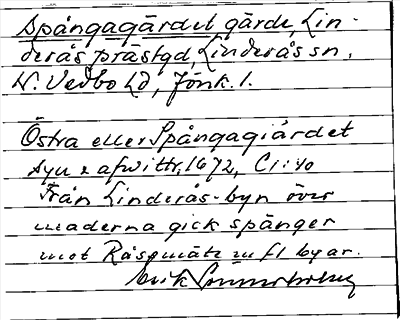 Spångagärdet gärde, Lin-
derås prästgd, Linderås sn,
N. Vedbo hd, Jönk. l.
Östra eller Spångagiärdet
Syn & afwittr, 1672, C1:40
Från Linderås-byn över
maderna gick spänger
mot Råsgmätz m fl byar.
Erik